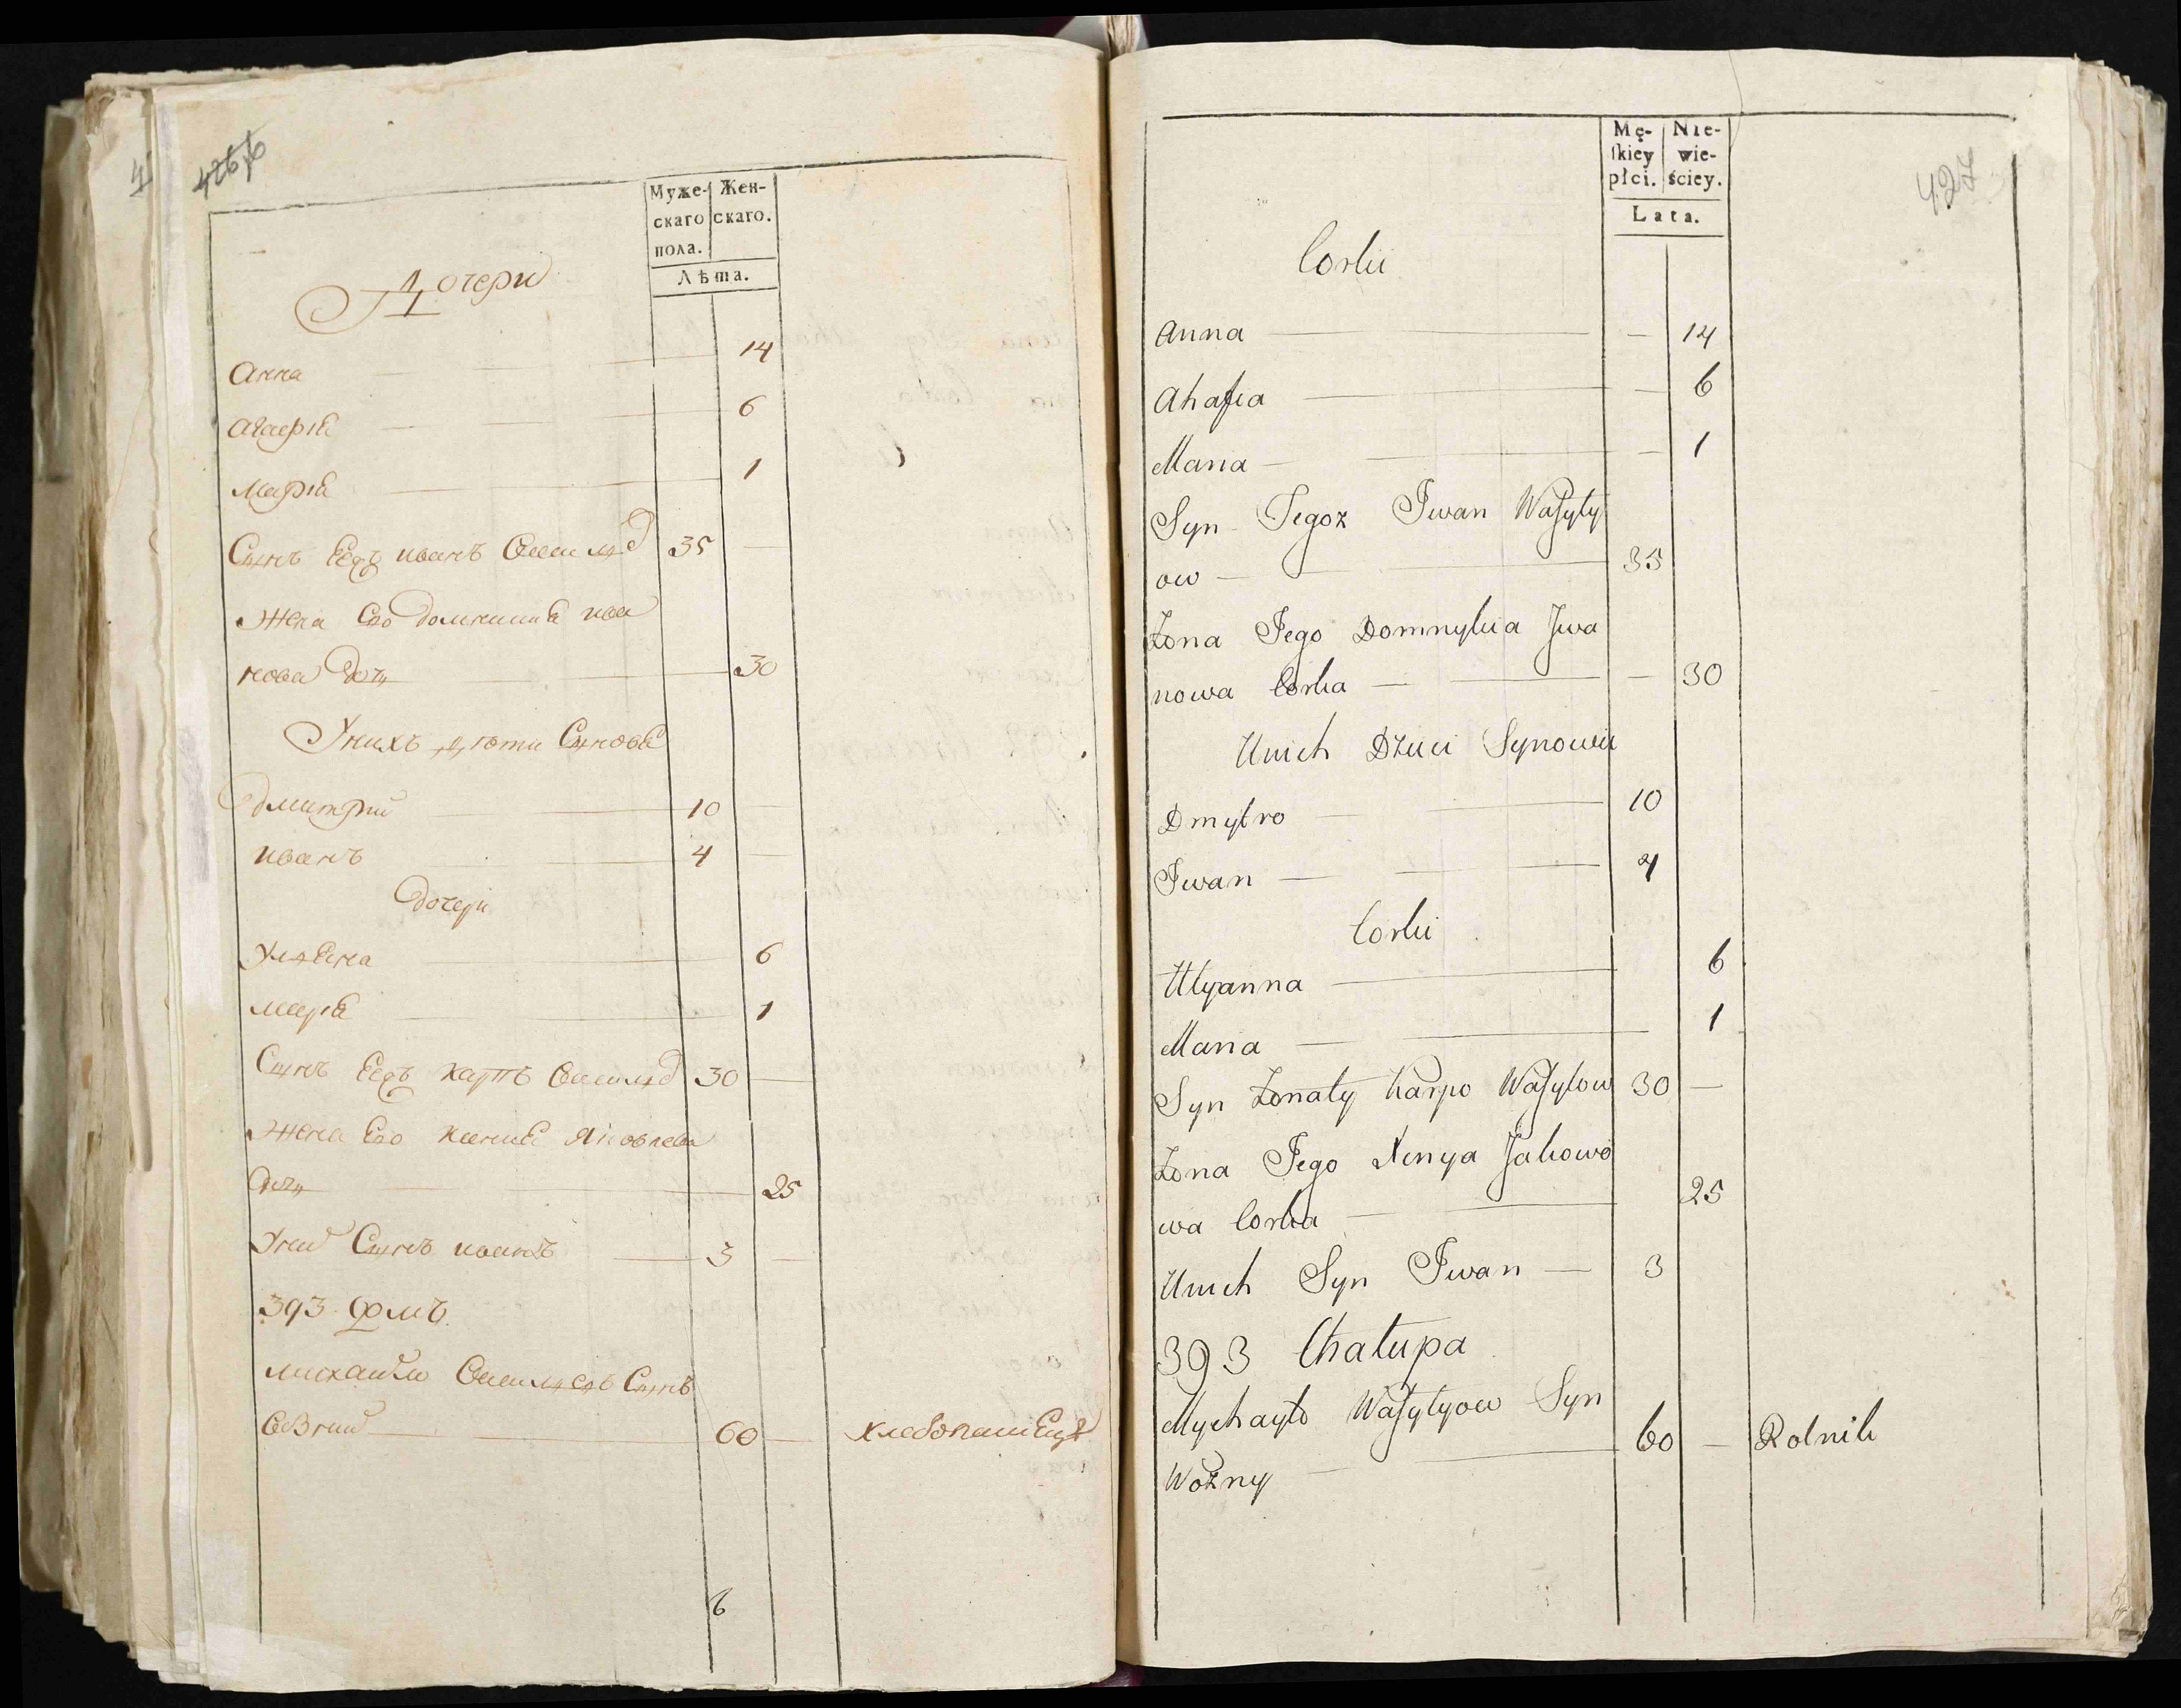 426
Муже-
скаго
пола.
Жен-
скаго.
Лѣта.
Дочери
Анна 14
Агафія 6
Марія 1
Сынъ Еяъ иванъ Василь 35 —
Жена Его домникия ива
нова Дочь 30
Унихъ дѣти Сыновя
дмитрий 10 —
иванъ 4 —
дочери
Ульяна 6
марія 1
Сынъ карпъ 30 —
Жена Его ксения Яковлева
дочь 25
Унии Сынъ иванъ 3 —
393
михайло Сынъ
60 — хлебопашецъ
427
Mę-
ſkiey
płci.
Nie-
wie-
ściey.
Lata.
Corki
Anna — 14
Ahafia — 6
Maria — 1
Syn Tegoz Iwan Waſyly
ow 35
Zona Jego Domnykia Iwa
nowa Corka — 30
Unich Dzieci Synowie
Dmytro 10
Iwan 4
Corki
Ulyanna 6
Maria 1
Syn Zonaty Karpo Waſylow 30 —
Zona Jego Xenya Jakowo
wa Corka 25
Unich Syn Iwan 3
393 Chałupa
Mychayło Waſylyow Syn
Wozny 60 — Rolnik